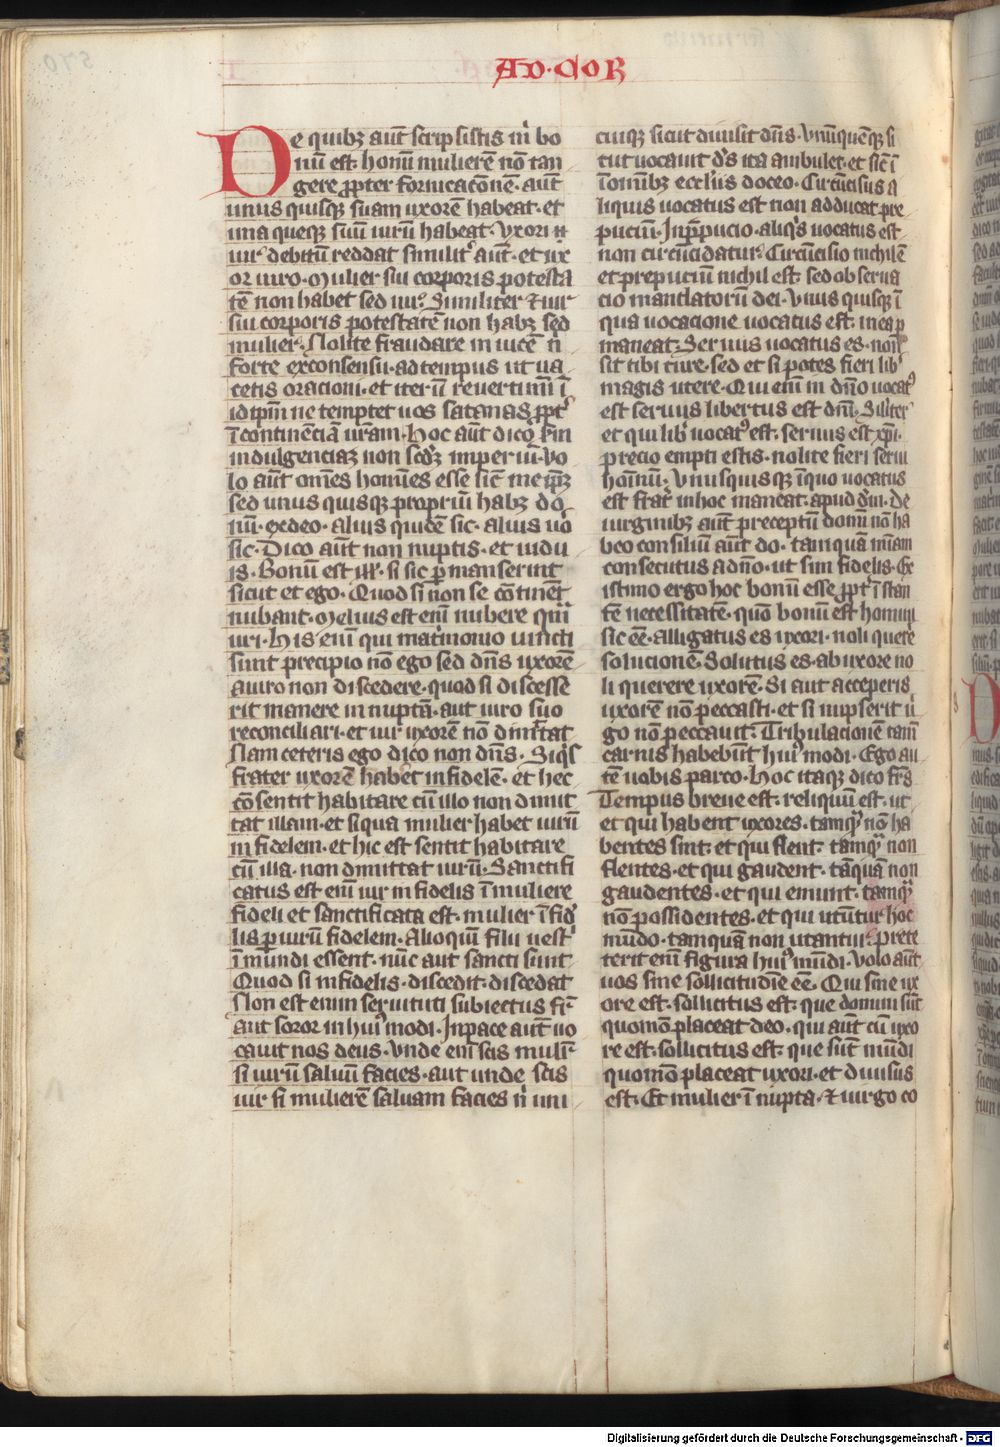 AD · COR
De quibꝫ aūt scripsistis m̄ bo
nū est · homī mulierē nō tan
gere ꝓpter fornicacōnē · aūt
unus quisqꝫ suam uxorē habeat · et
una queqꝫ suū uirū habeat · Vxori
uir debitū reddat similit̄ aūt · et ux
or uiro · Mulier sui corporis potesta
tē non habet sed uir · Similiter & uir
sui corporis potestatē non habꝫ sed
mulier · Nolite fraudare in uicē n̄
forte ex consensu · ad tempus ut ua
cetis oracioni · et iterū reuertimī ī
idip̄m ne temptet uos satanas ꝓpt̄
īcontinēciā ur̄am · Hoc aūt dico
indulgenciaꝫ non scd̄ꝫ imperiū · Vo
lo aūt om̄es homīes esse sic̄ me ip̄ꝫ
sed unus quisqꝫ propriū habꝫ do
nū · ex deo · alius quidē sic · alius uō
sic · Dico aūt non nuptis · et uidu
is · Bonū est ill̄ · si sic ꝑmanserint
sicut et ego · Quod si non se cōtinēt
nubant · Melius est enī nubere qm̄
uri · His enī qui matrimonio uincti
sunt precipio nō ego sed dn̄s uxorē
a uiro non discedere · quod si discesse
rit manere in nuptā · aut uiro suo
reconciliari · et uir uxorē nō dimittat
Nam ceteris ego dico non dn̄s · Siqˢ
frater uxorē habet infidelē · et hec
cōsentit habitare cū illo non dimit
tat illam · et si qua mulier habet uirū
infidelem · et hic est sentit habitare
cū illa · non dimittat uirū · Sanctifi
catus est enī uir infidelis ī muliere
fideli et sanctificata est · mulier īfid
lis ꝑ uirū fidelem · Alioquī filii uest̄
īmundi essent · nūc aut sancti sunt
Quod si infidelis · discedit · discedat
Non est enim seruituti subiectus fr̄
aut soror in huiꝰ modi · In pace aūt uo
cauit nos deus · Vnde enī scis muli
si uirū saluū facies · aut unde scis
uir si mulierē saluam facies n̄ uni
cuiqꝫ sicut diuisit dn̄s · Vnūquēqꝫ si
cut uocauit dˢ ita ambulet · et sic̄ ī
īomībꝫ ecclīis doceo · Circūcisus a
liquis uocatus est non adducat pre
puciū · In p̄pucio · aliqˢ uocatus est
non circūcidatur · Circūcisio nichil ē
et prepuciū nichil est · sed obserua
cio mandatorū dei · Vnus quisqꝫ ī
qua uocacione uocatus est · in ea ꝑ
maneat · Seruus uocatus es · non
sit tibi cure · sed et si potes fieri lib̄
magis utere · Qui enī in dn̄o uocatꝰ
est seruus libertus est dn̄i · Silīter
et qui lib̄ uocatꝰ est · seruus est xp̄i ·
precio empti estis · nolite fieri serui
homīū · Vnusquisqꝫ ī quo uocatus
est fratr̄ in hoc maneat · apud dm̄ · De
uirginibꝫ aūt preceptū domī nō ha
beo consiliū aūt do · tamquā mīam
consecutus a dn̄o · ut sim fidelis · Ex
istimo ergo hoc bonū esse ꝓpt̄ īstan
tē necessitatē · quō bonū est homini
sic eē · alligatus es uxori · noli querē
solucionē · Solutus es · ab uxore no
li querere uxorē · Si aut acceperis
uxorē nō peccasti · et si nupserit ū
go nō peccauit · Tribulacionē tam̄
carnis habebūt huiꝰ modi · Ego au
tē uobis parco · Hoc itaqꝫ dico fr̄s
Tempus breue est · reliquū est · ut
et qui habent uxores · tamqꝫ nō ha
bentes sint · et qui flent · tamqꝫ non
flentes · et qui gaudent · tāquā non
gaudentes · et qui emunt · tamqꝫ
nō possidentes · et qui utūtur hoc
mūdo · tamquā non utantur · prete
terit enī figura huiꝰ mūdi · Volo aūt
uos sine sollicitudīe eē · Qui sine ux
ore est · sollicitus est · que domini sūt
quomō placeat deo · qui aūt cū uxo
re est · sollicitus est · que sūt mūdi
quomō placeat uxori · et diuisus
est · Et mulier ī nupta · & uirgo co
Digitalisierung gefördert durch die Deutsche Forschungsgemeinschaft - DFG